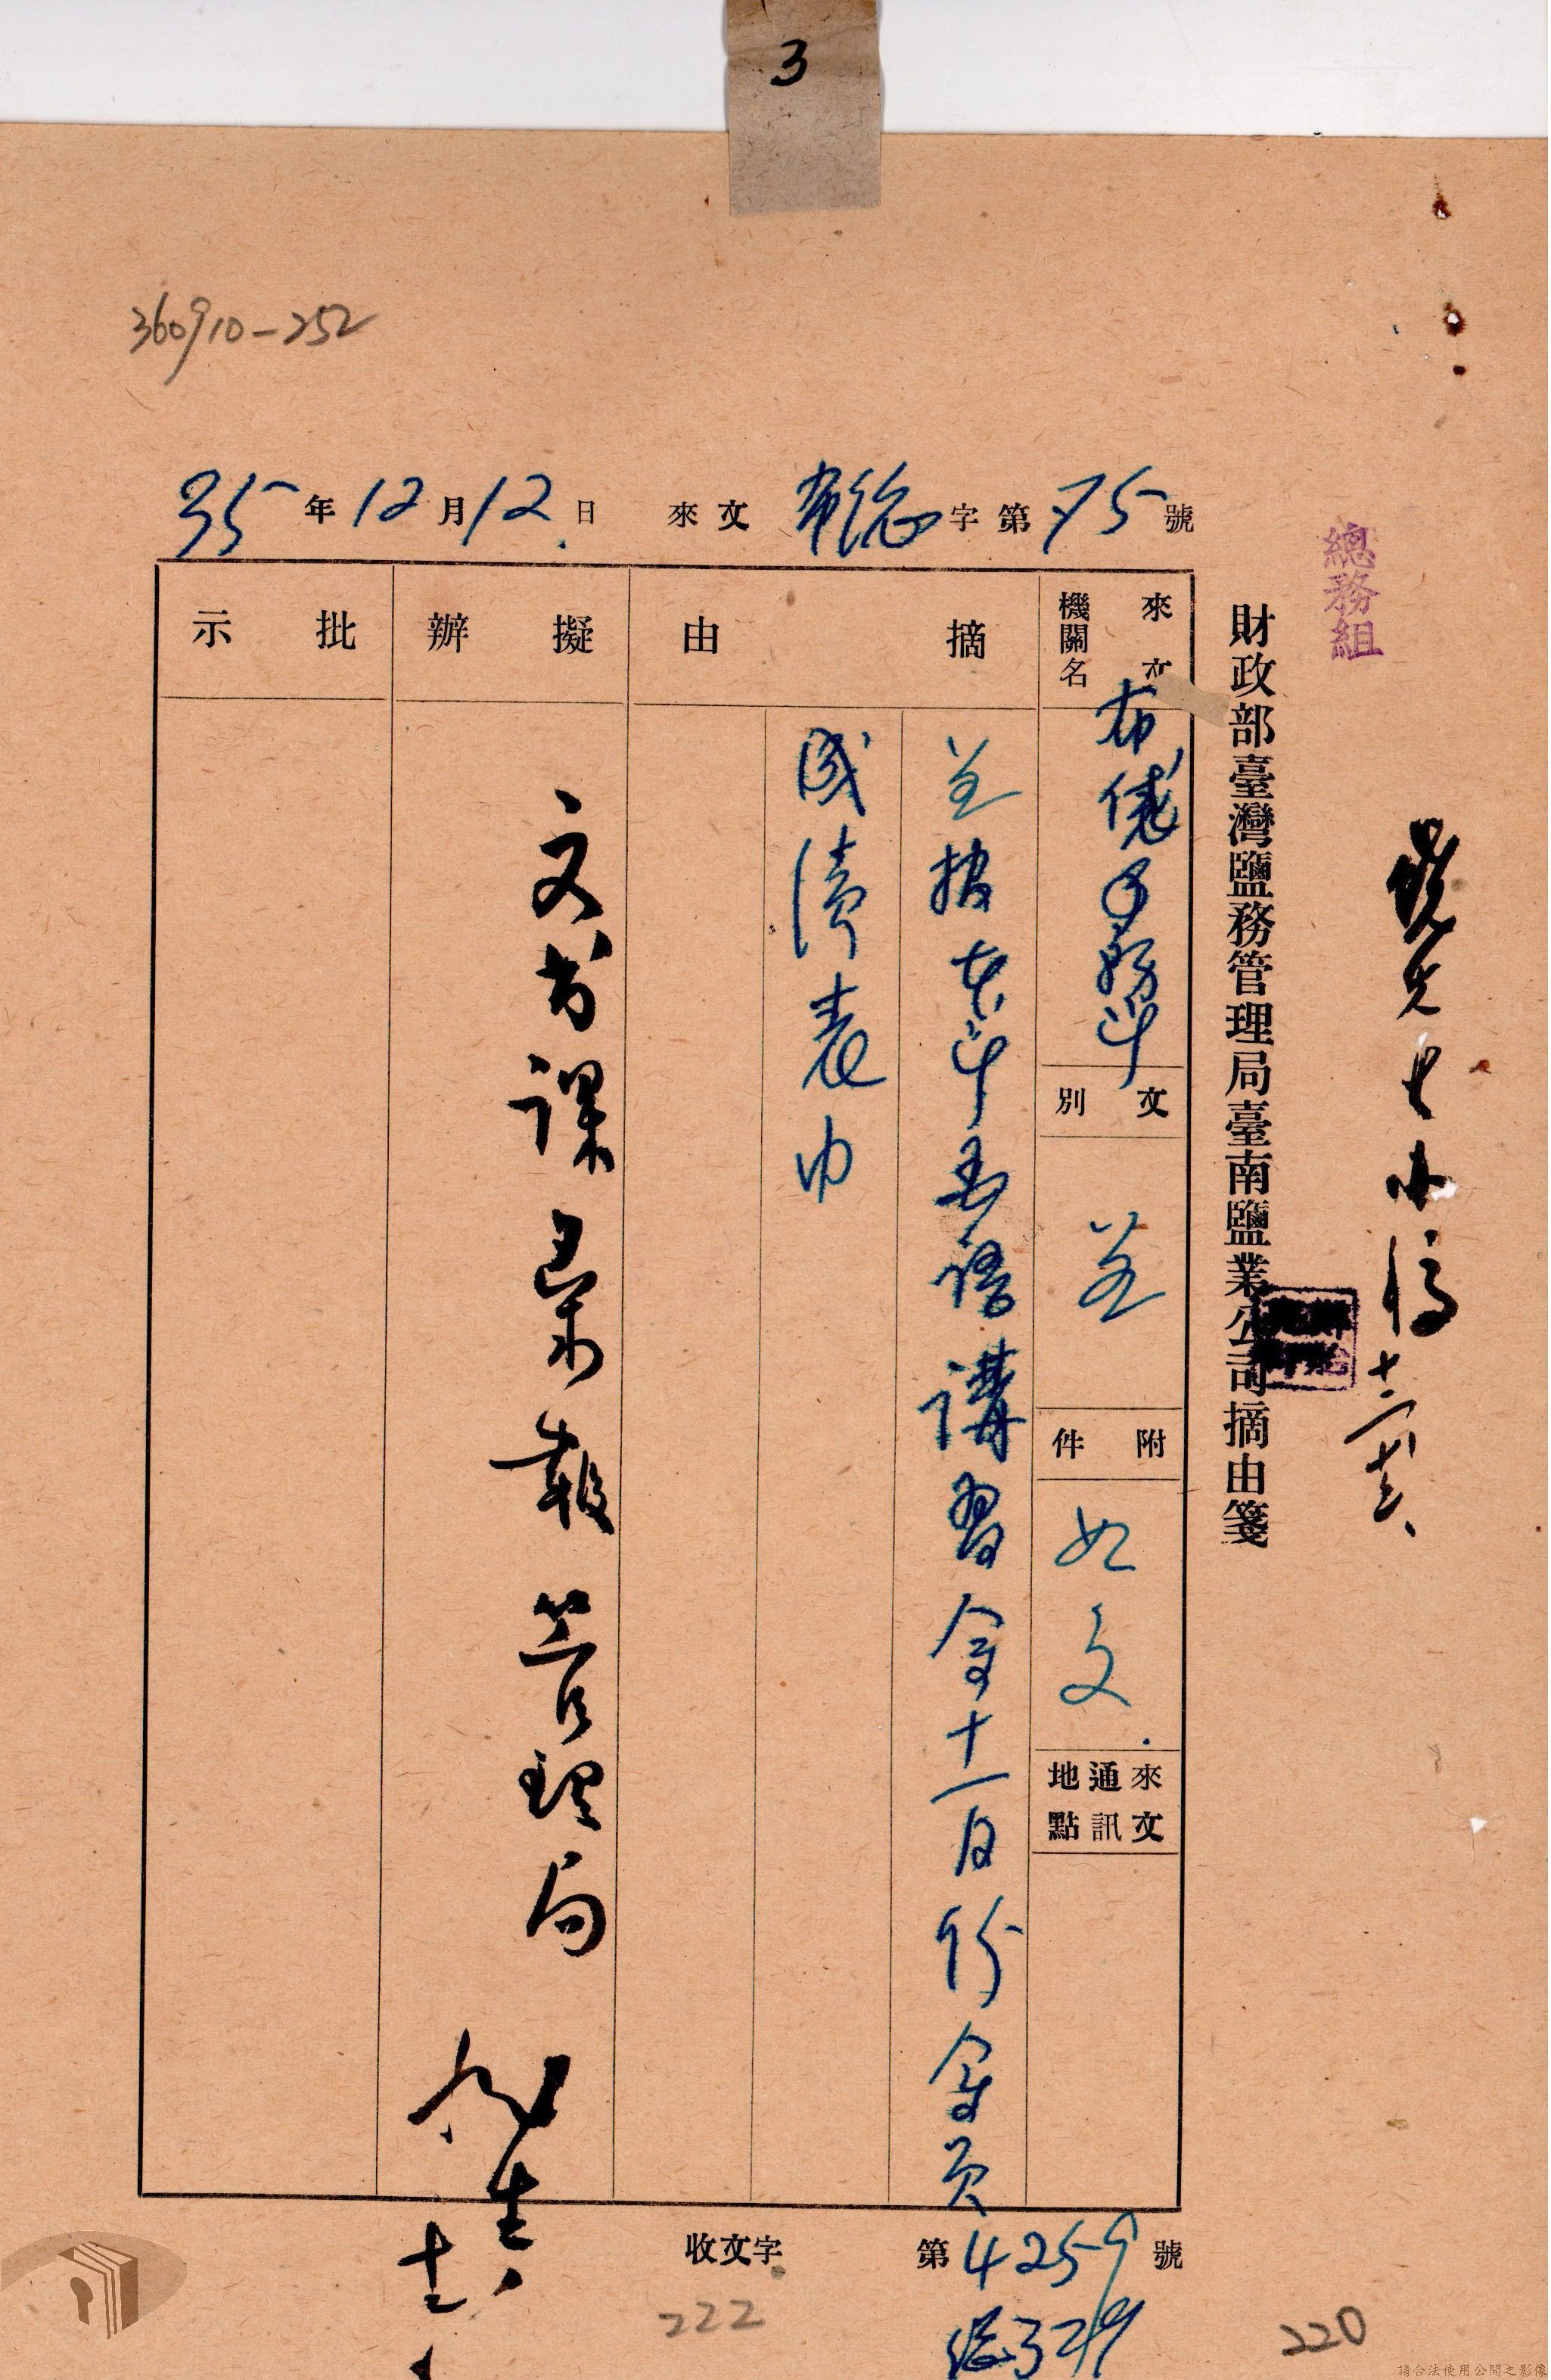 3
360910-252
總務組
財政部臺灣鹽務管理局臺南鹽業公司摘由箋
35年12月12日 來文 布總字第75號
來文機關名
布袋事務所
文別
呈
附件
如文
來文通訊地點
摘由
呈報本所國語講習會十一月份會員
成績表由
擬辦
文書課彙報管理局
批示
收文字 第4259號
總329
222
220
請合法使用公開之影像